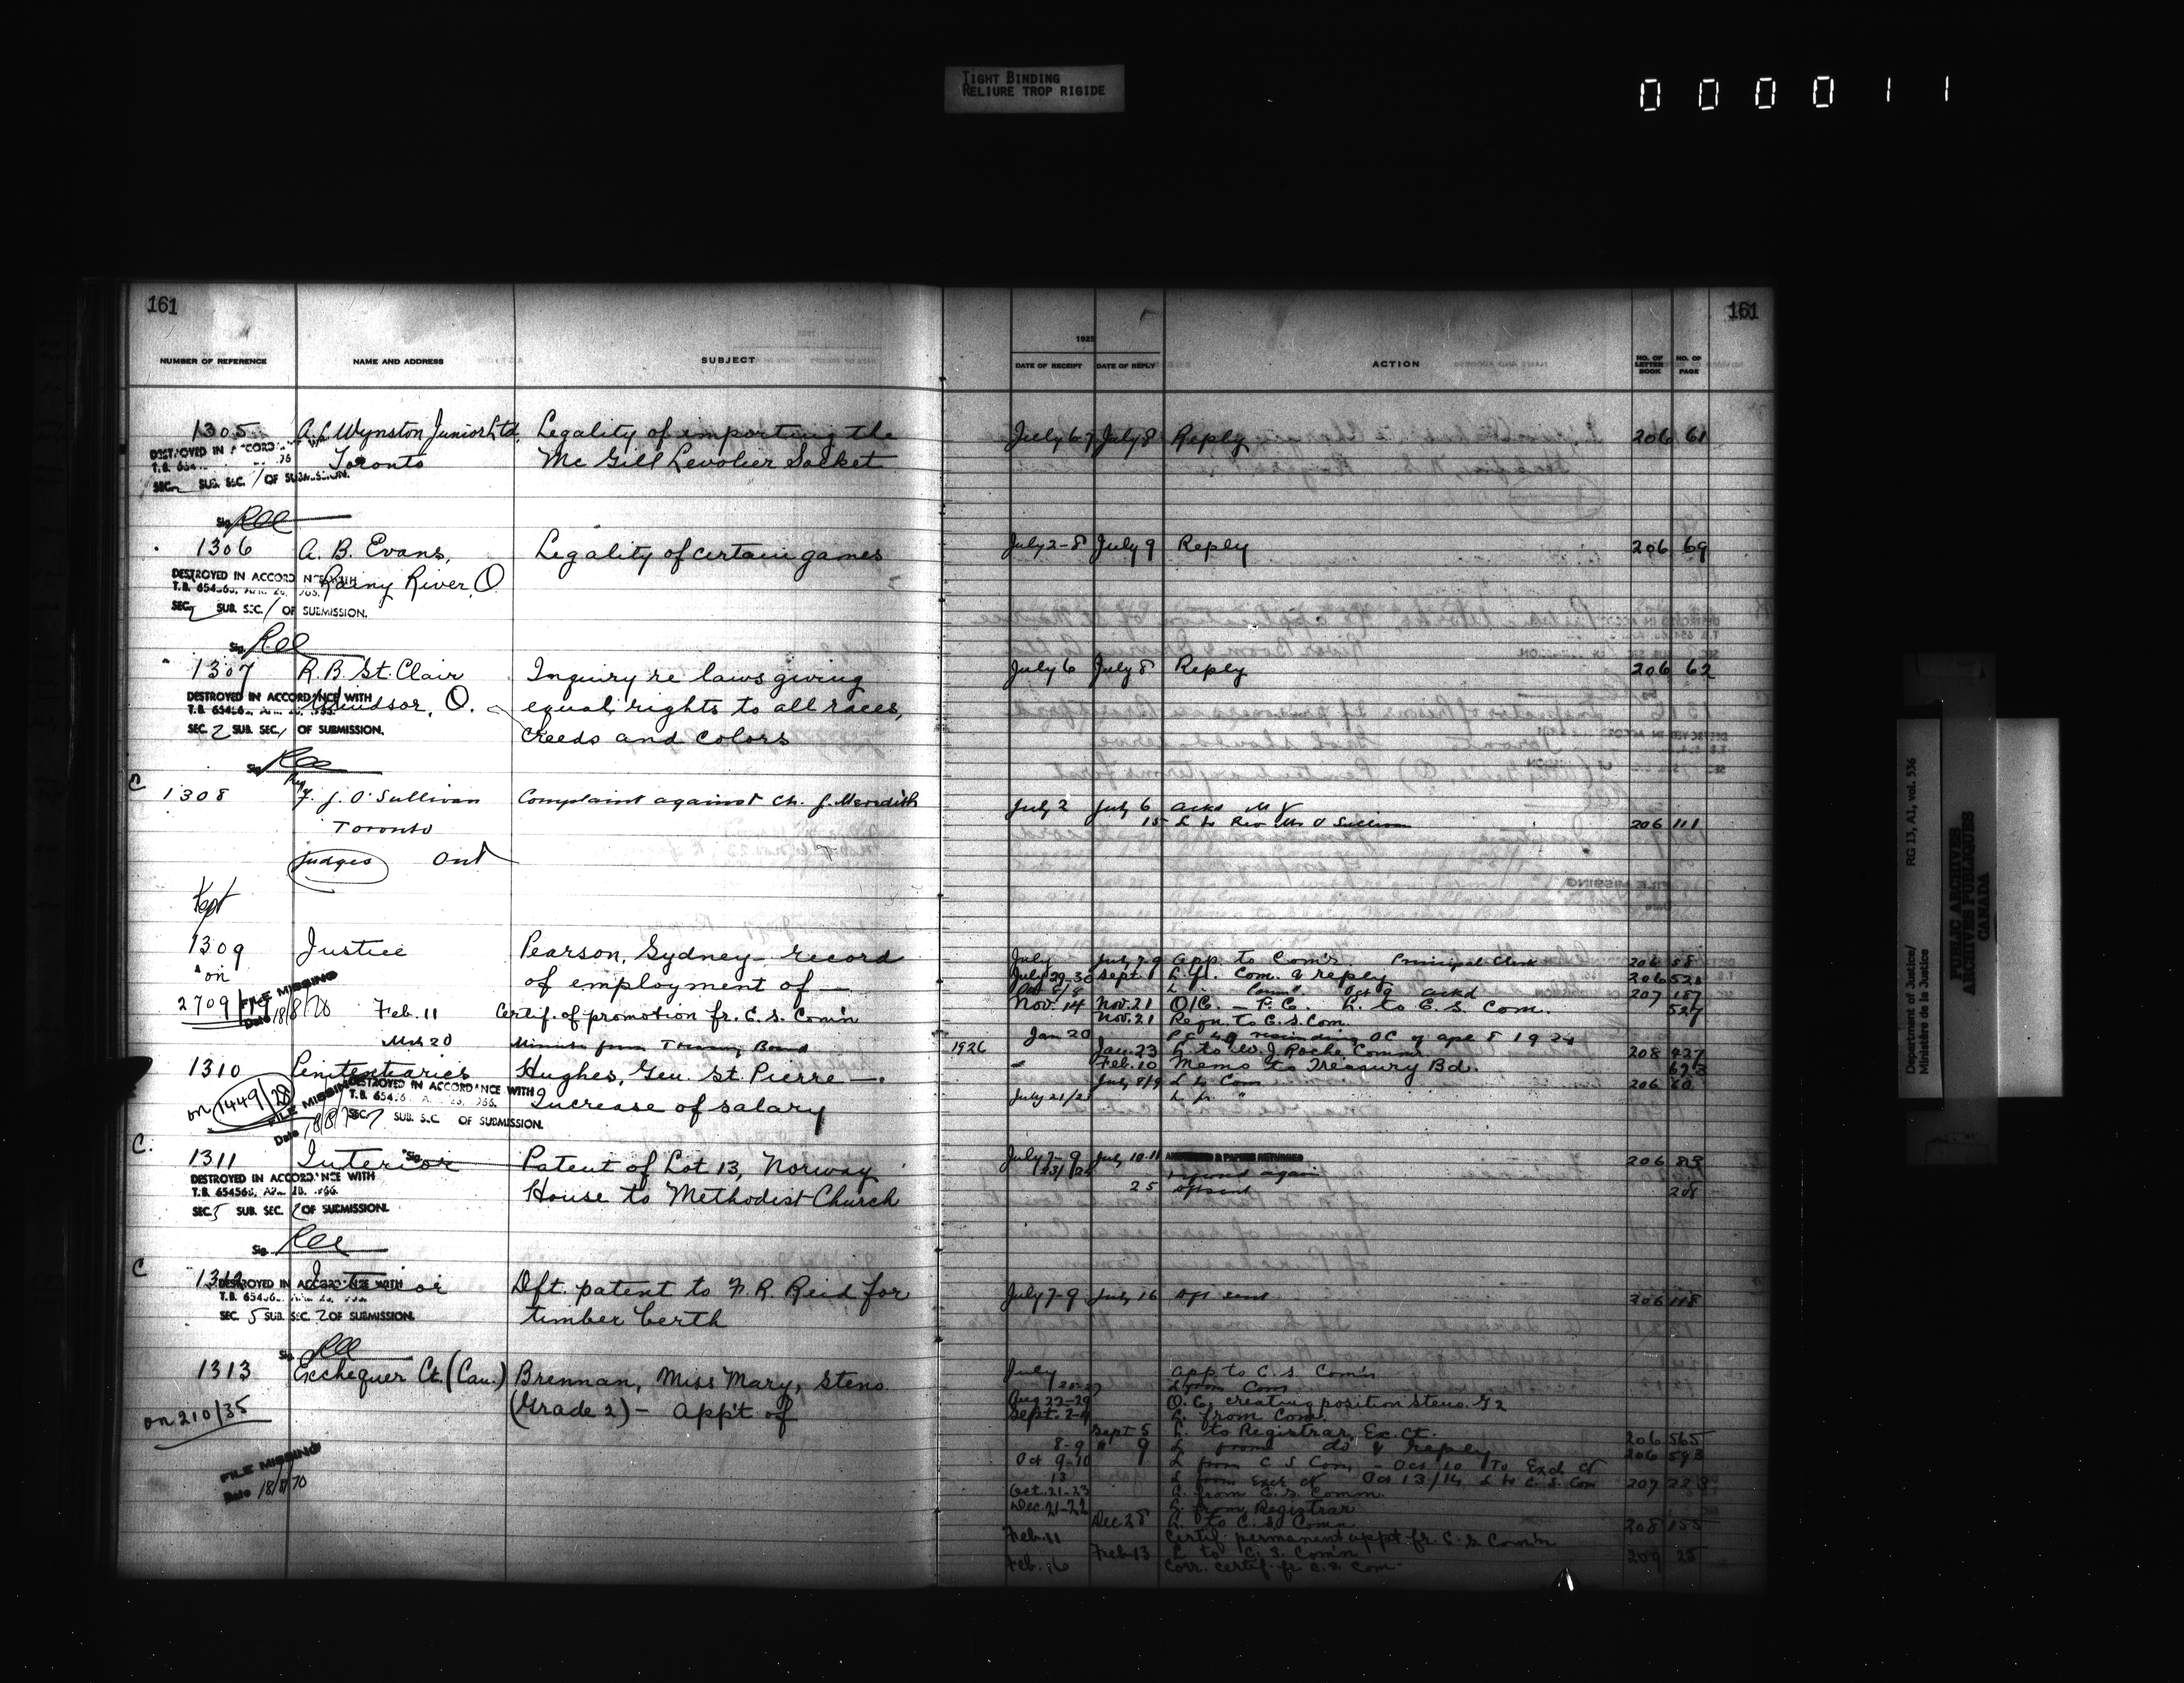 TIGHT BINDING
RELIURE TROP RIGIDE
000011
161
161
1925
NUMBER OF REFERENCE NAME AND ADDRESS SUBJECT DATE OF RECEIPT DATE OF REPLY ACTION NO. OF LETTER BOOK NO. OF PAGE
1305 A. L. Wynston Junior Ltd. Legality of importing the July 6-7 July 8 Reply 206 61
Toronto McGill Levolier Socket
DESTROYED IN ACCORDANCE WITH
SEC. 2 SUB. SEC. 1 OF SUBMISSION.
Sig.
1306 A. B. Evans, Legality of certain games July 2-8 July 9 Reply 206 69
Rainy River, O.
DESTROYED IN ACCORDANCE WITH
SEC. 2 SUB. SEC. 1 OF SUBMISSION.
Sig.
1307 R. B. St. Clair Inquiry re laws giving July 6 July 8 Reply 206 62
Windsor, O. equal rights to all races,
creeds and colors
DESTROYED IN ACCORDANCE WITH
SEC. 2 SUB. SEC. 1 OF SUBMISSION.
Sig.
C
1308 Rev. F. J. O'Sullivan Complaint against Ch. J. Meredith July 2 July 6 Ackd
Toronto 15 L to Rev. Mr O'Sullivan 206 111
Judges Ont
Kept
1309 Justice Pearson, Sydney - record July July 7-9 App. to Com'r. Principal Clerk 206 58
of employment of — July 29-30 Sept. 1 L. fr. Com. & reply 206 521
on 2709/19 Oct 9 ackd 207 187
FILE MISSING
Date 18/8/70
Nov. 14 Nov. 21 O/C. - F.C. L. to C. S. Com. 527
Feb. 11 Certif. of promotion fr. C. S. Com'n Nov. 21 Reqn. to C. S. Com.
Mch 20 Minute from Treasury Board Jan 20
1926 Jan. 23 L. to W. J. Roche Commr. 208 427
1310 Penitentiaries Hughes, Gen. St. Pierre — Feb. 10 Memo to Treasury Bd. 693
Increase of salary July 8/9 L to Com 206 60
July 21/2 L. fr. "
on 1449/28
FILE MISSING
DESTROYED IN ACCORDANCE WITH
SUB. SEC. OF SUBMISSION.
C.
1311 Interior Patent of Lot 13, Norway July 7-9 July 10-11 ANSWERED & PAPERS RETURNED 206 83
House to Methodist Church again
25 Opt sent 208
DESTROYED IN ACCORDANCE WITH
SEC. 5 SUB. SEC. 2 OF SUBMISSION.
Sig.
C
1312 Interior Dft. patent to F. R. Reid for July 7-9 July 16 Opt sent 206 118
timber berth
DESTROYED IN ACCORDANCE WITH
SEC. 5 SUB. SEC. 2 OF SUBMISSION.
Sig.
1313 Exchequer Ct. (Can.) Brennan, Miss Mary, Steno. July App to C. S. Com'n
(Grade 2) - App't of L from Com
on 210/35 Aug 22-29 O. C. creating position Steno. G2
Sept. 2-4 L. from Com.
Sept 5 L. to Registrar, Ex. Ct. 206 565
8-9 " 9 L from do & reply 206 593
Oct 9-10 L from C S Com - Oct 10 To Exch Ct
13 L from Exch Ct Oct 13/14 L to C. S. Com 207 223
Oct. 21-23 L. from C. S. Comm.
Dec. 21-22 L. from Registrar
Dec 28 L. to C. S. Comn 208 155
Feb. 11 Certif. permanent appt fr. C. S. Com'n
Feb. 13 L to C. S. Com'n 209 25
Feb. 16 Corr. certif. fr C. S. Com.
FILE MISSING
Date 18/8/70
Department of Justice/
Ministère de la Justice
RG 13, A1, vol. 536
PUBLIC ARCHIVES
ARCHIVES PUBLIQUES
CANADA